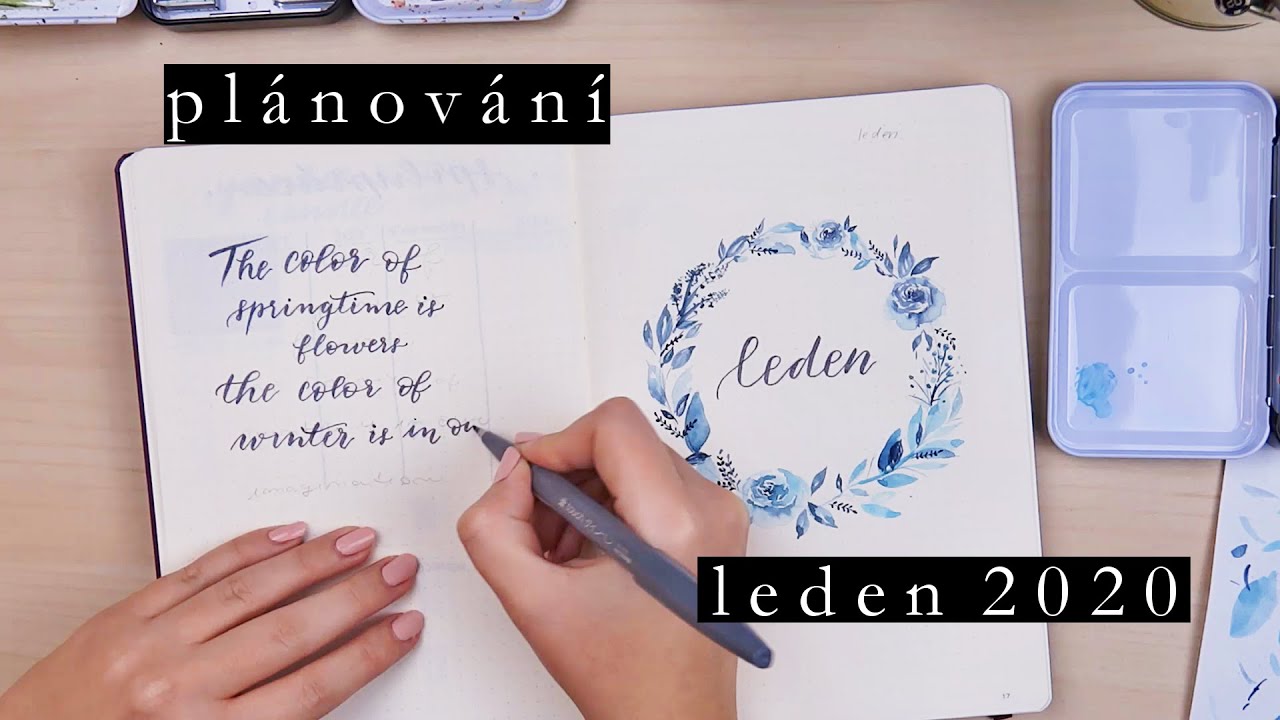 plánování
leden
The color of
springtime is
flowers
the color of
winter is in ou
imagination
leden
leden 2020
17